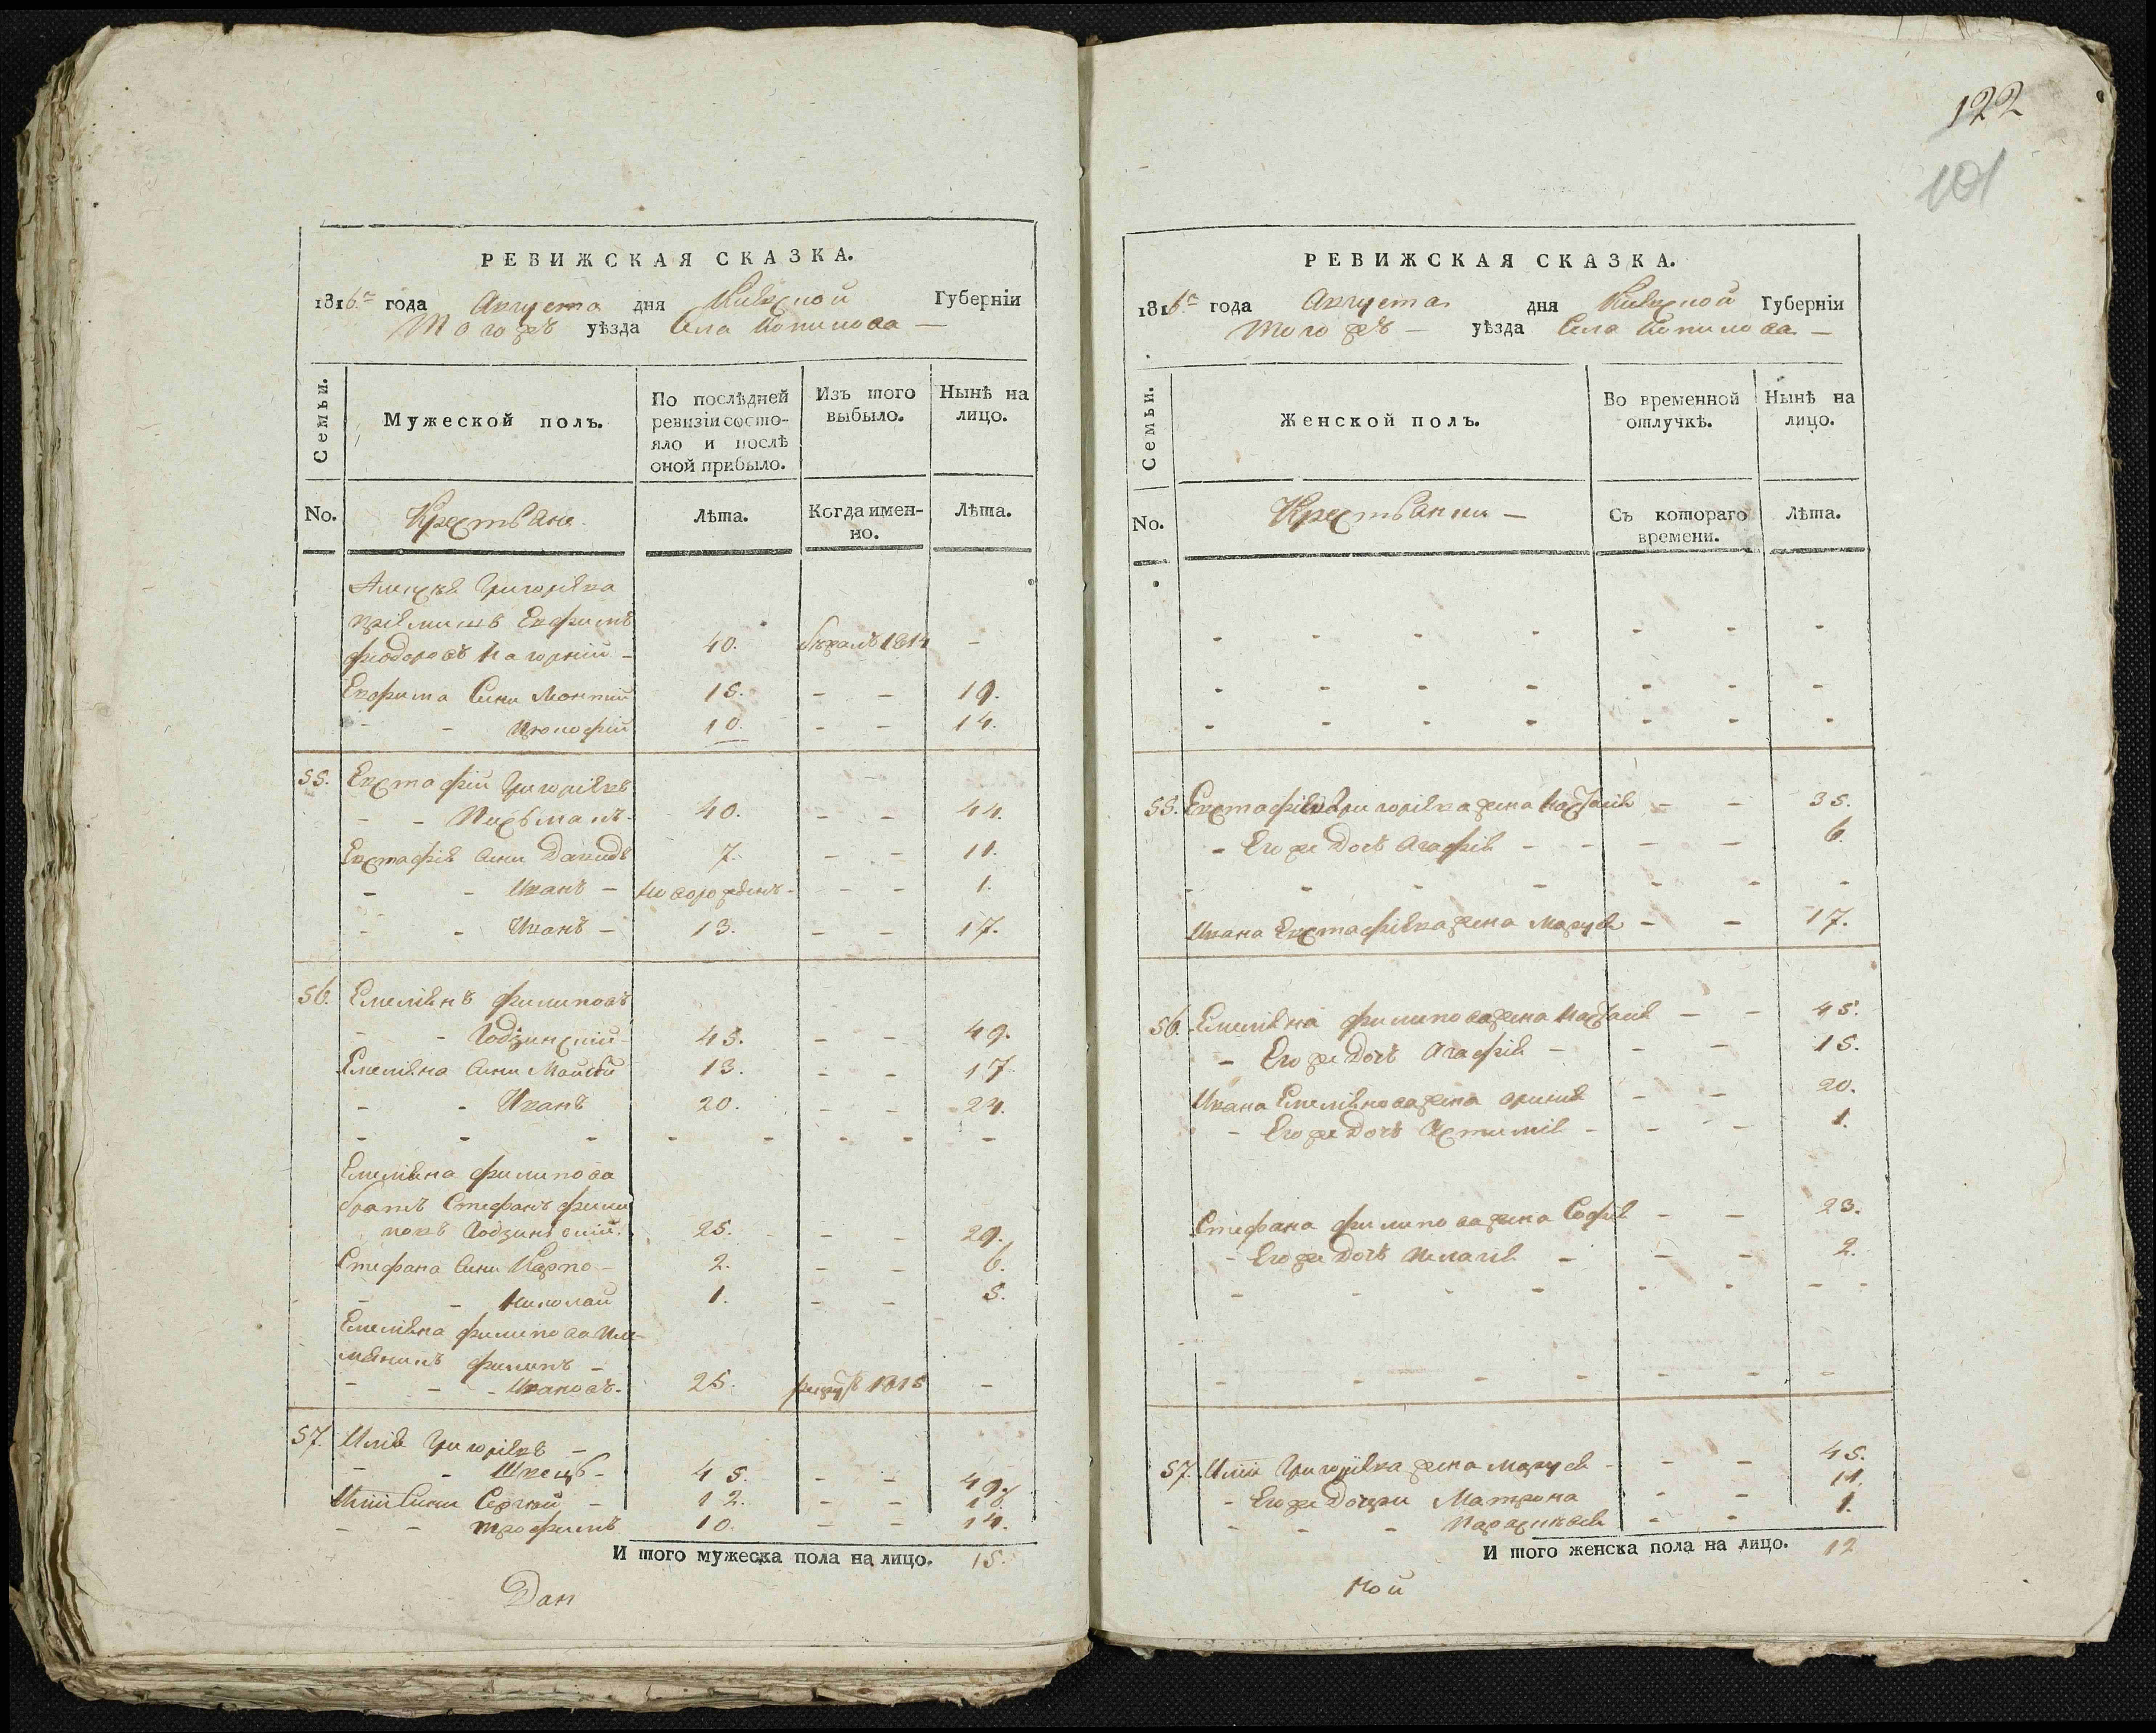 РЕВИЖСКАЯ СКАЗКА.
1816го года Августа дня Киевской Губерніи
Того жъ уѣзда Села Копилова —
Семьи.
Мужеской полъ.
По послѣдней ревизіи состояло и послѣ оной прибыло.
Изъ того выбыло.
Нынѣ на лицо.
No.
Крестьяне
Лѣта.
Когда именно.
Лѣта.
Алексѣя Григорієва
пріймишъ Евфимъ
Феодоровъ Нагорній - 40. бѣжалъ 1814 -
Евфима Сини 15. - - 19.
- - Прокофій 10. - - 14.
55. Евстафій Григорієвъ
- - 40. - - 44.
Евстафія Сини Давидъ 7. - - 11.
- - Иванъ - Новорожденъ - - - 1.
- - Иванъ - 13. - - 17.
56. Емеліянъ Филиповъ
- - Годзинскій 45. - - 49.
Емеліяна Сини Мойсѣй 13. - - 17
- - Иванъ 20. - - 24.
- - - - - - - -
Емеліяна Филипова
братъ Стефанъ Фили
повъ Годзинскій. 25. - - 29.
Стефана Сини Карпо - 2. - - 6.
- - Николай 1. - - 5.
Емеліяна Филипова Пле-
мянникъ Филипъ -
- - - Ивановъ. 25. 1815 -
57. Илія Григорієвъ -
- - Швець - 45. - - 49.
Иліи Сини Сергѣй - 12. - - 16.
- - Трофимъ 10. - - 14.
И того мужеска пола на лицо. 15.
Дан
122
101
РЕВИЖСКАЯ СКАЗКА.
1816го года Августа дня Киевской Губерніи
Того жъ - уѣзда Села Копилова —
Семьи.
Женской полъ.
Во временной отлучкѣ.
Нынѣ на лицо.
No.
Крестьянки —
Съ котораго времени.
Лѣта.
- - - - - - -
- - - - - - -
- - - - - - -
55. Евстафія Григорієва жена Настасія - - 35.
- Его же Дочь Агафія - - - - 6.
- - - - - - -
Ивана Евстафієва жена Маруся - - 17.
56. Емеліяна Филипова жена Настасія - - 45.
- Его же Дочь Агафія - - - 15.
Ивана Емеліянова жена Орина - - 20.
- Его же Дочь Устимія - - - 1.
Стефана Филипова жена Софія - - 23.
- Его же Дочь Пелагія - - - 2.
- - - - - - - -
- - - - - - -
57. Иліи Григорієва жена Маруся - - - 45.
- Его же Дочери Матрона - - 11.
- - - - - 1.
И того женска пола на лицо. 12
ной